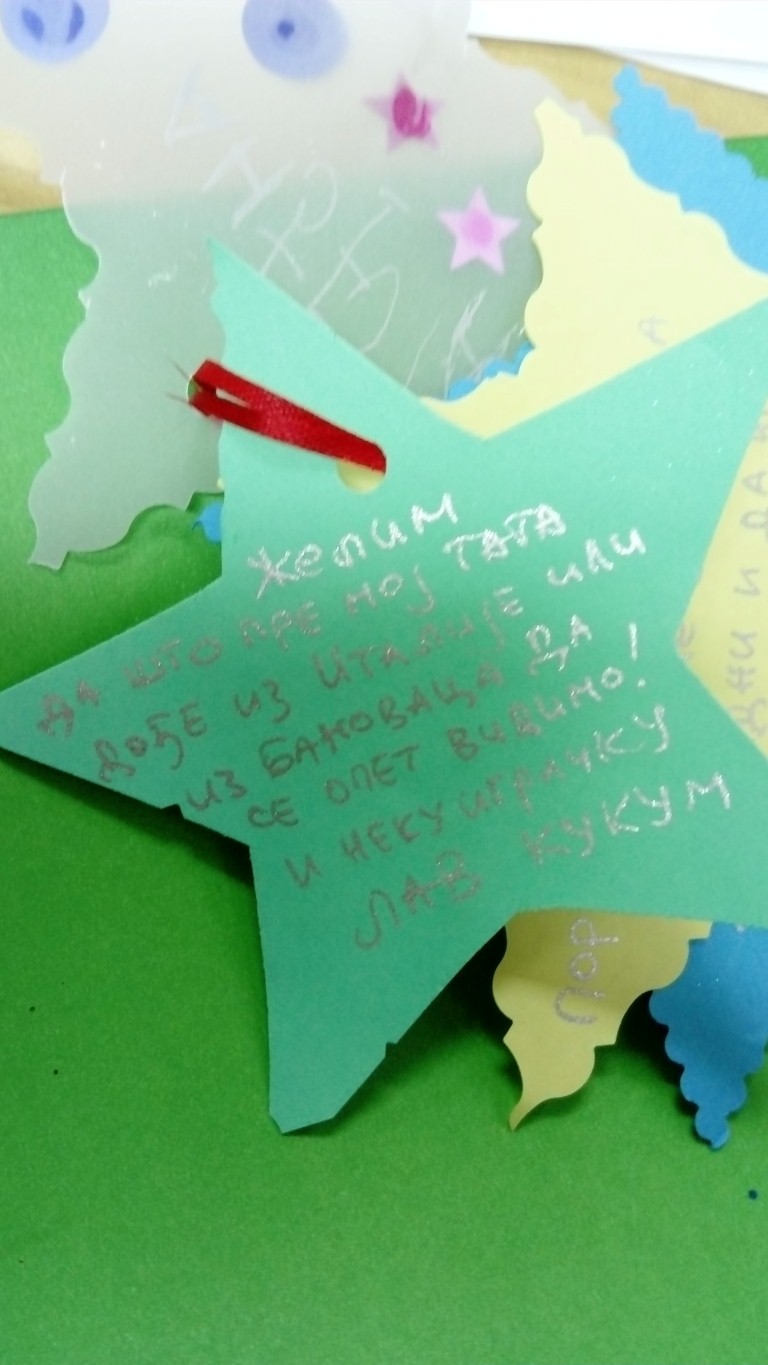 ЖЕЛИМ
ДА ШТО ПРЕ МОЈ ТАТА
ДОЂЕ ИЗ ИТАЛИЈЕ ИЛИ
ИЗ БАНОВАЦА ДА
СЕ ОПЕТ ВИДИМО!
И НЕКУ ИГРАЧКУ
ЛАВ КУКУМ
ДНИ И ДА
Пор